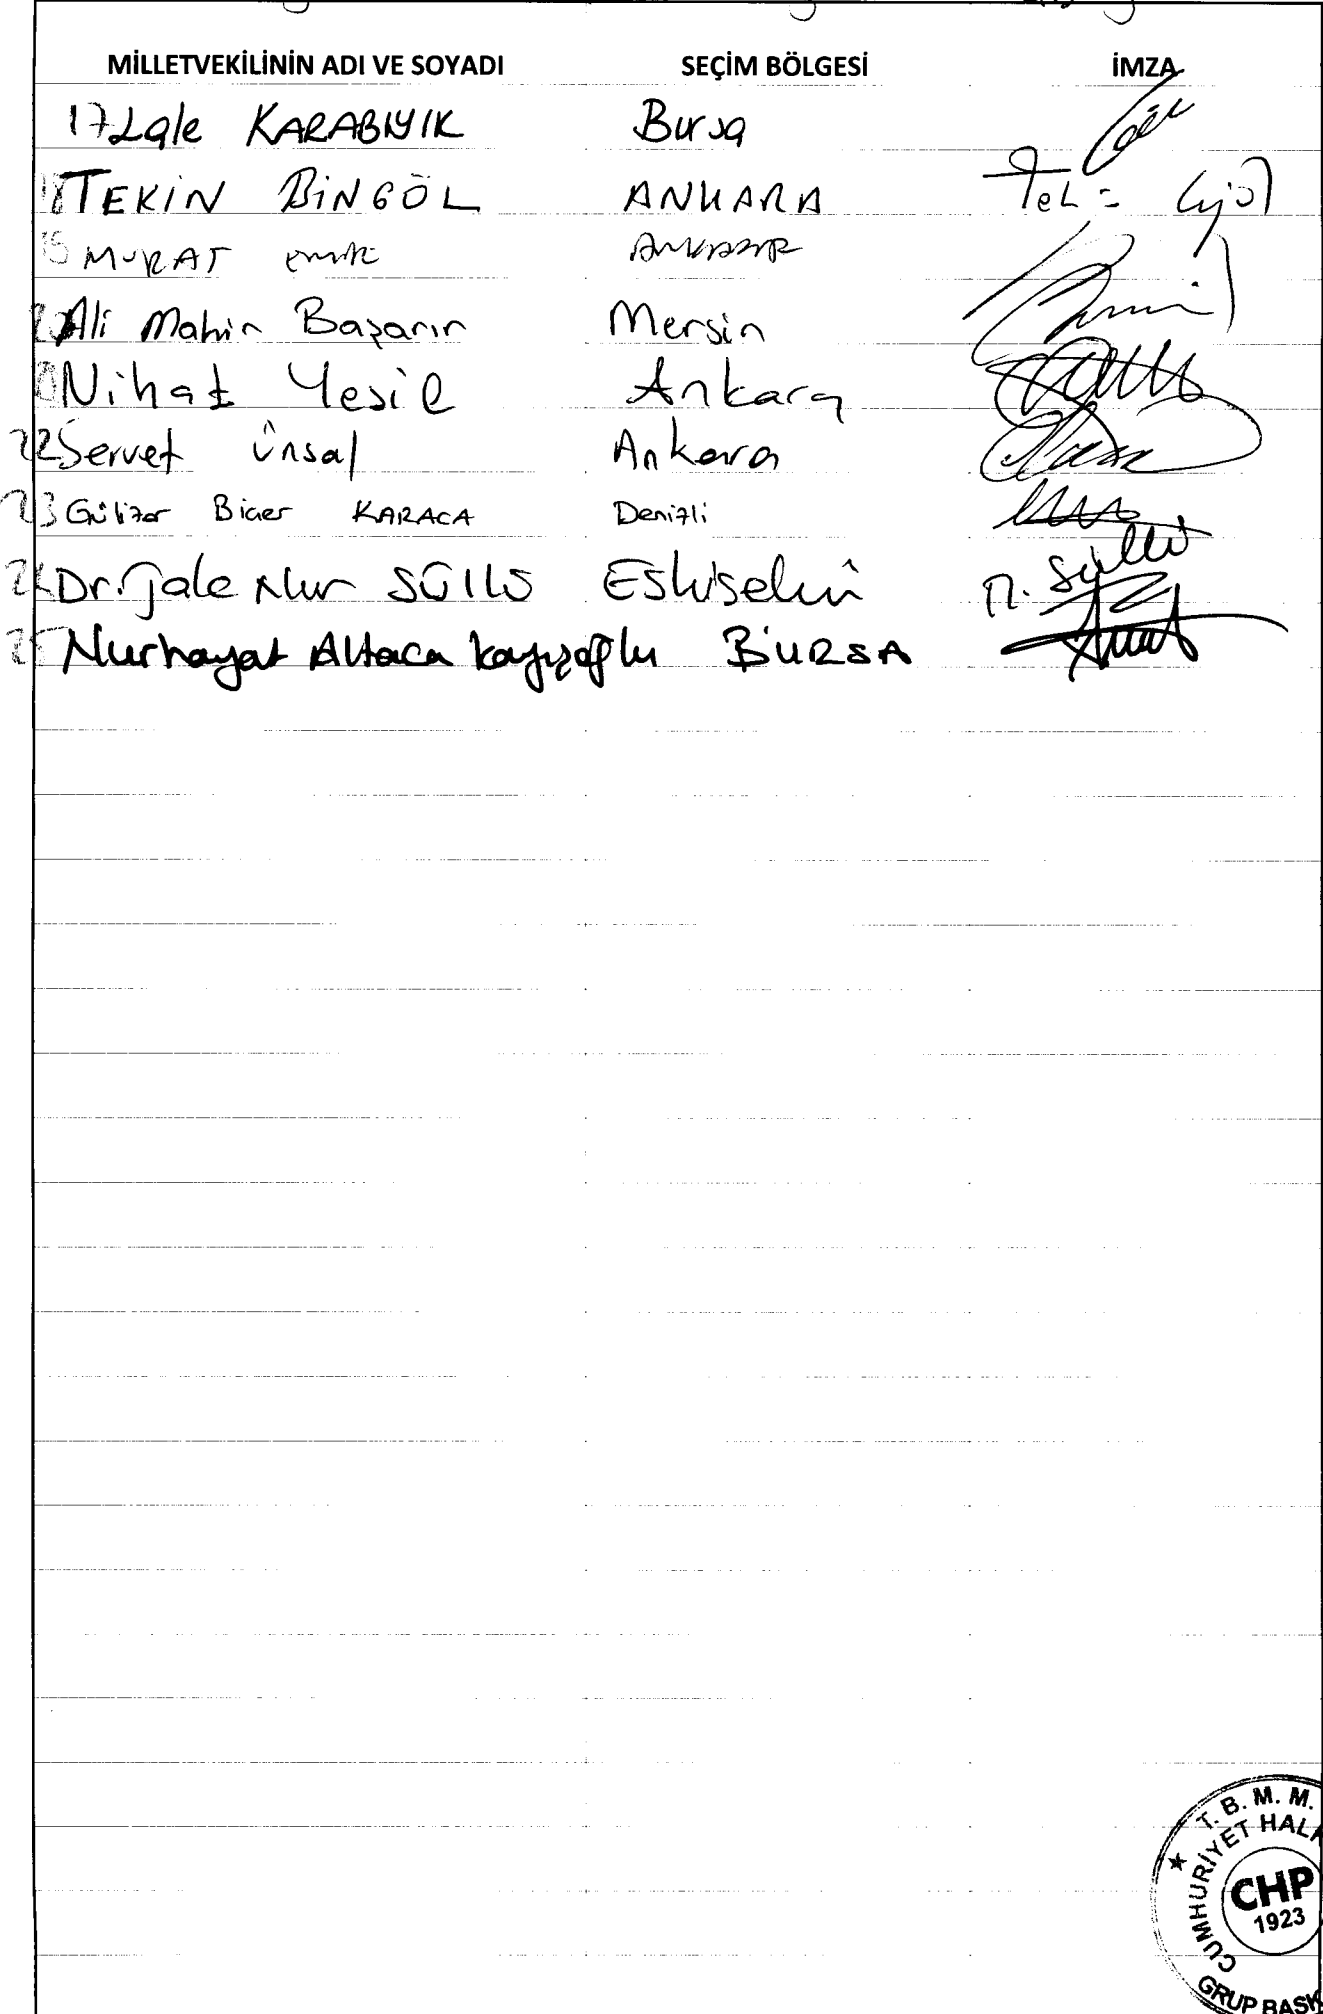 MİLLETVEKİLİNİN ADI VE SOYADI SEÇİM BÖLGESİ İMZA
17 Lale KARABIYIK Bursa
18 TEKİN BİNGÖL ANKARA
19 MURAT emir Ankara
20 Ali Mahir Başarır Mersin
Nihat Yeşil Ankara
22 Servet Ünsal Ankara
23 Gülizar Biçer KARACA Denizli
24 Dr. Jale Nur SÜLLÜ Eskişehir
25 Nurhayat Altaca Kayışoğlu BURSA
T. B. M. M.
CUMHURİYET HALK
CHP
1923
GRUP BAŞK